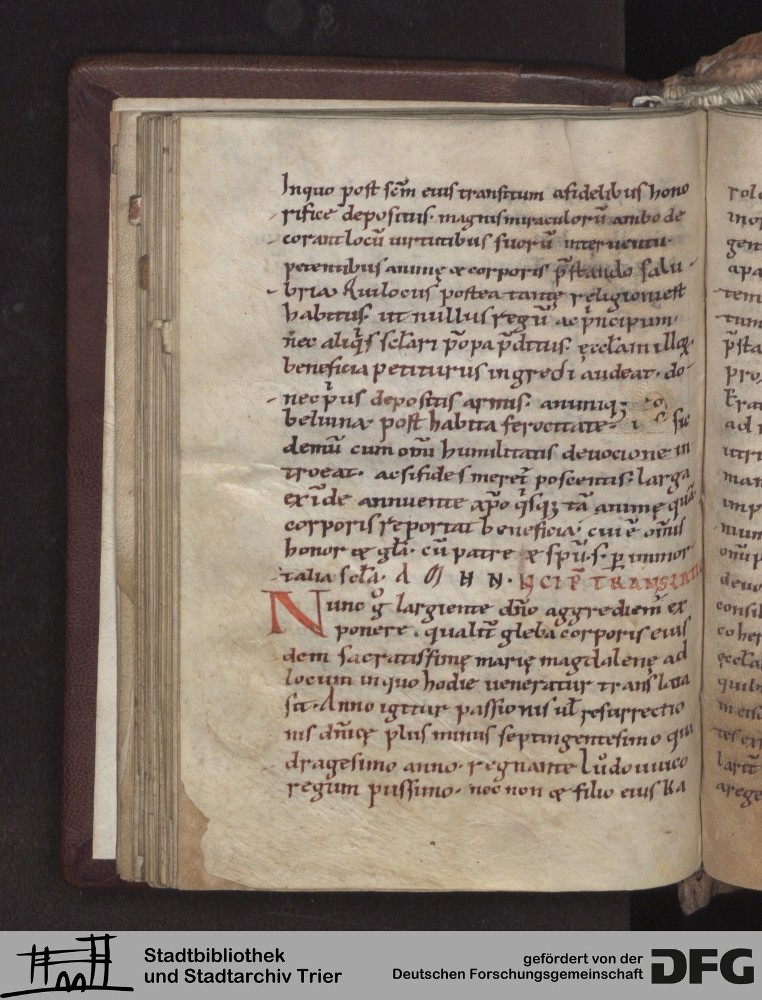 Inquo post scm̄ eius transitum afidelibus hono
rifice depositus· magnis miraculorū ambo de
corant locū uirtutibus suorū interuentu·
petentibus animę & corporis p̄stando salu
bria Qui locus postea tantę religionis est
habitus· ut nullus regū ac p̄ncipum·
nec aliq̇s sclari pōpa p̄ditus· ęcclām illā·
beneficia petiturus ingredi audeat· do
nec p̄us depositis armis· animiq;
beluina post habita ferocitate· sic
demū cum omī humilitatis deuocione in
troeat· ac si fides meret̄ poscentis· larga
exīde annuente xp̄o q̇sq; tā animę quā
corporis reportat beneficia· cui ē omnis
honor & gl̄a· cū patre & spū·s· p̱ inmor
talia scl̄a· A M H N· INCIP̄ TRANSLATIO
Nunc g̊ largiente dn̄o aggrediem̄ ex
ponere· qualit̄ gleba corporis eius
dem sacratissimę marię magdalenę ad
locum inquo hodie ueneratur translata
sit· Anno igitur passionis ul̄ resurrectio
nis dn̄icę plus minus septingentesimo qua
dragesimo anno· regnante lůdouuico
regum piissimo· nec non & filio eius Ka
Stadtbibliothek
und Stadtarchiv Trier
gefördert von der
Deutschen Forschungsgemeinschaft
DFG